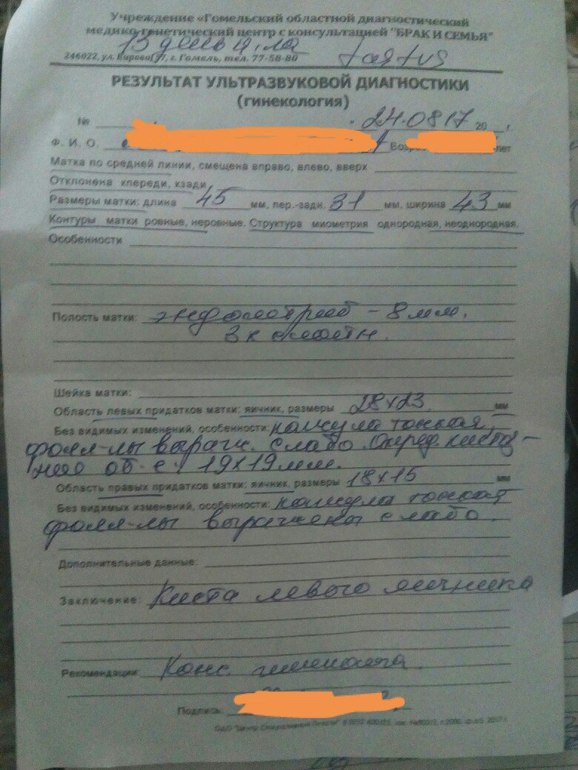 Учреждение «Гомельский областной диагностический
медико-генетический центр с консультацией "БРАК И СЕМЬЯ"
246022, ул. Кирова, 57, г. Гомель, тел. 77-58-80
13 день ц.
РЕЗУЛЬТАТ УЛЬТРАЗВУКОВОЙ ДИАГНОСТИКИ
(гинекология)
№ 24.08.17 20 г.
Ф. И. О. Возр лет
Матка по средней линии, смещена вправо, влево, вверх
Отклонена кпереди, кзади
Размеры матки: длина 45 мм, пер.-задн. 31 мм, ширина 43 мм
Контуры матки ровные, неровные. Структура миометрия однородная, неоднородная.
Особенности
Полость матки: эндометрий - 8 мм.
Шейка матки:
Область левых придатков матки: яичник, размеры 28х23 мм
Без видимых изменений, особенности: капсула тонкая,
фолл-лы выраж. слабо. Опред. кистоз-
ное об-е 19х19 мм.
Область правых придатков матки: яичник, размеры 18х15 мм
Без видимых изменений, особенности: капсула тонкая
фолл-лы выражены слабо.
Дополнительные данные:
Заключение: Киста левого яичника
Рекомендации: Конс. гинеколога.
Подпись